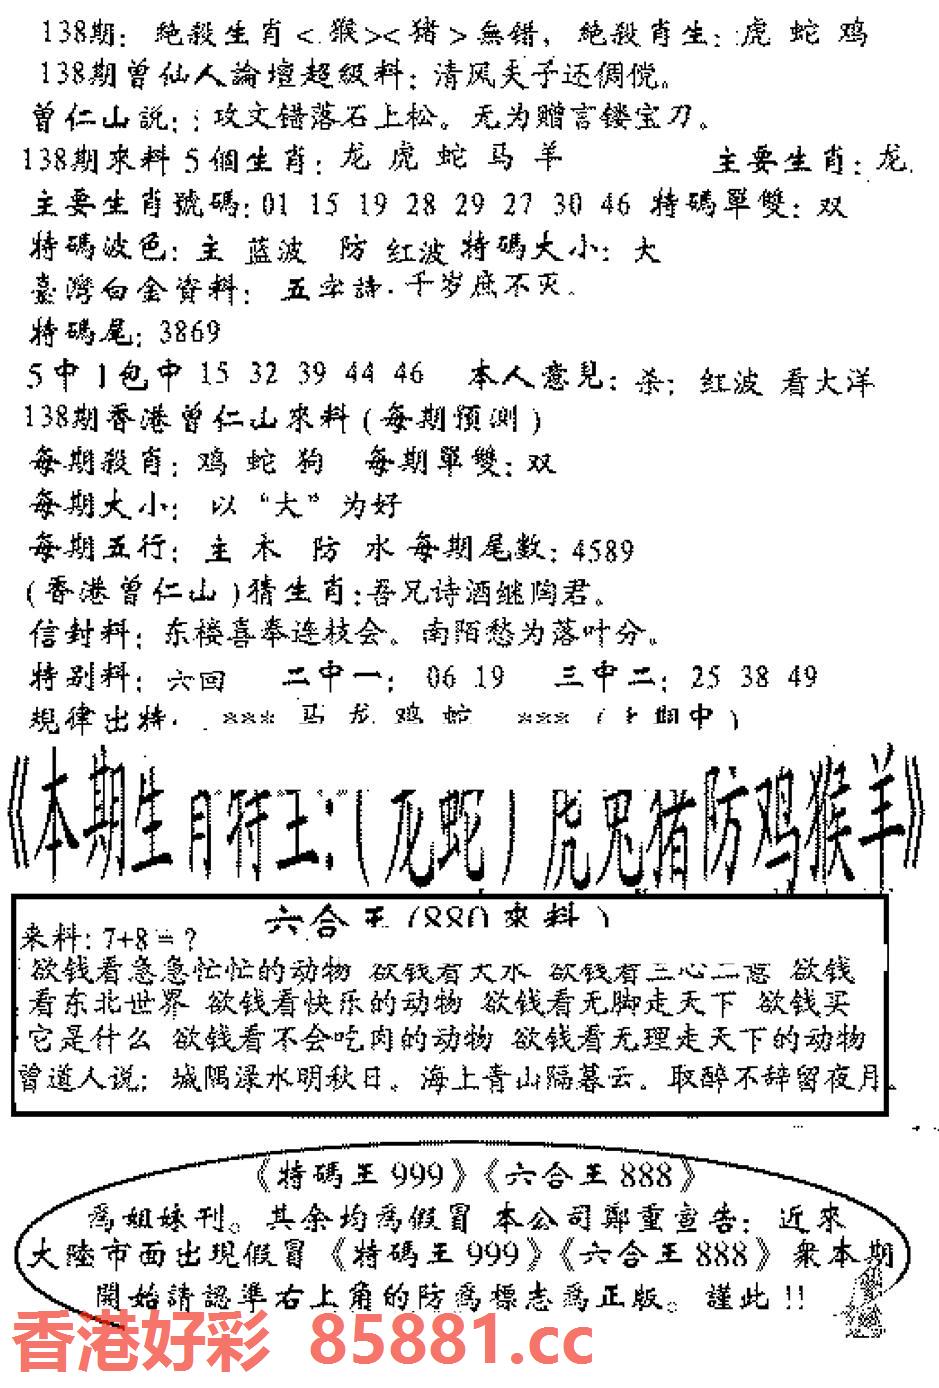 138期: 絶殺生肖<猴><猪>無错, 絶殺肖生: 虎 蛇 鸡
138期曾仙人論壇超級料: 清风天子还倜傥。
曾仁山説: : 攻文错落石上松。无为赠言镂宝刀。
138期來料 5 個生肖: 龙 虎 蛇 马 羊 主要生肖: 龙.
主要生肖號碼: 01 15 19 28 29 27 30 46 特碼單雙: 双
特碼波色: 主 蓝波 防 红波 特碼大小: 大
臺灣白金資料: 五字詩. 千岁庶不灭.
特碼尾: 3869
5 中 1 包中 15 32 39 44 46 本人意見: 杀: 红波 看大洋
138期香港曾仁山來料 (每期預測)
每期殺肖: 鸡 蛇 狗 每期單雙: 双
每期大小: 以“大”为好
每期五行: 主 木 防 水 每期尾数: 4589
(香港曾仁山)猜生肖: 吾兄诗酒继陶君。
信封料: 东楼喜奉连枝会。南陌愁为落叶分。
特别料: 六回 二中一: 06 19 三中二: 25 38 49
規律出特. *** 马 龙 鸡 蛇 *** (上期中)
《本期生肖特王:(龙蛇)虎兔猪防鸡猴羊》
六合王(880來料)
来料: 7+8=?
欲钱看急急忙忙的动物 欲钱看大水 欲钱看三心二意 欲钱
看东北世界 欲钱看快乐的动物 欲钱看无脚走天下 欲钱买
它是什么 欲钱看不会吃肉的动物 欲钱看无理走天下的动物
曾道人说: 城隅渌水明秋日。海上青山隔暮云。取醉不辞留夜月.
《特碼王 999》《六合王 888》
爲姐妹刊。其余均爲假冒 本公司鄭重宣告: 近來
大陸市面出現假冒《特碼王 999》《六合王 888》衆本期
開始請認準右上角的防爲標志爲正版。謹此 !!
香港好彩 85881.cc